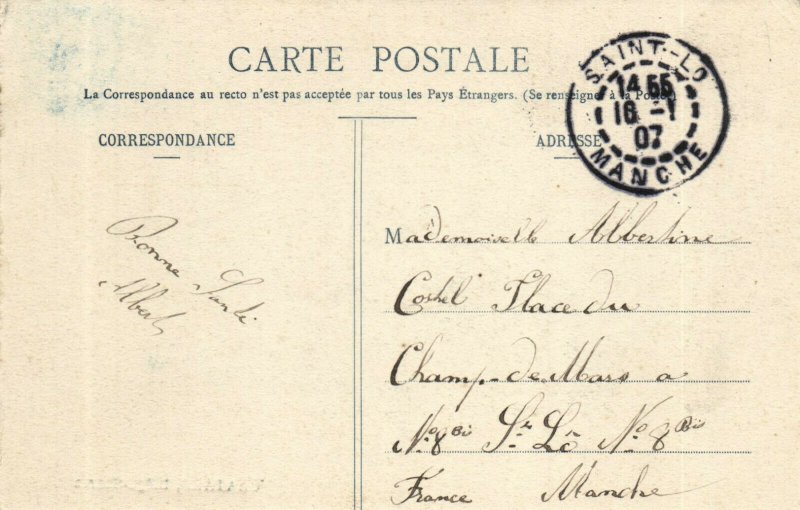 CARTE POSTALE
La Correspondance au recto n'est pas acceptée par tous les Pays Étrangers. (Se renseigner à la Poste)
SAINT-LO
14 55
16 -1
07
MANCHE
CORRESPONDANCE
ADRESSE
Bonne Santé
Albert
Mademoiselle Albertine
Costel Place du
Champ-de-Mars a
No 8 Bis St Lô No 8 Bis
France Manche